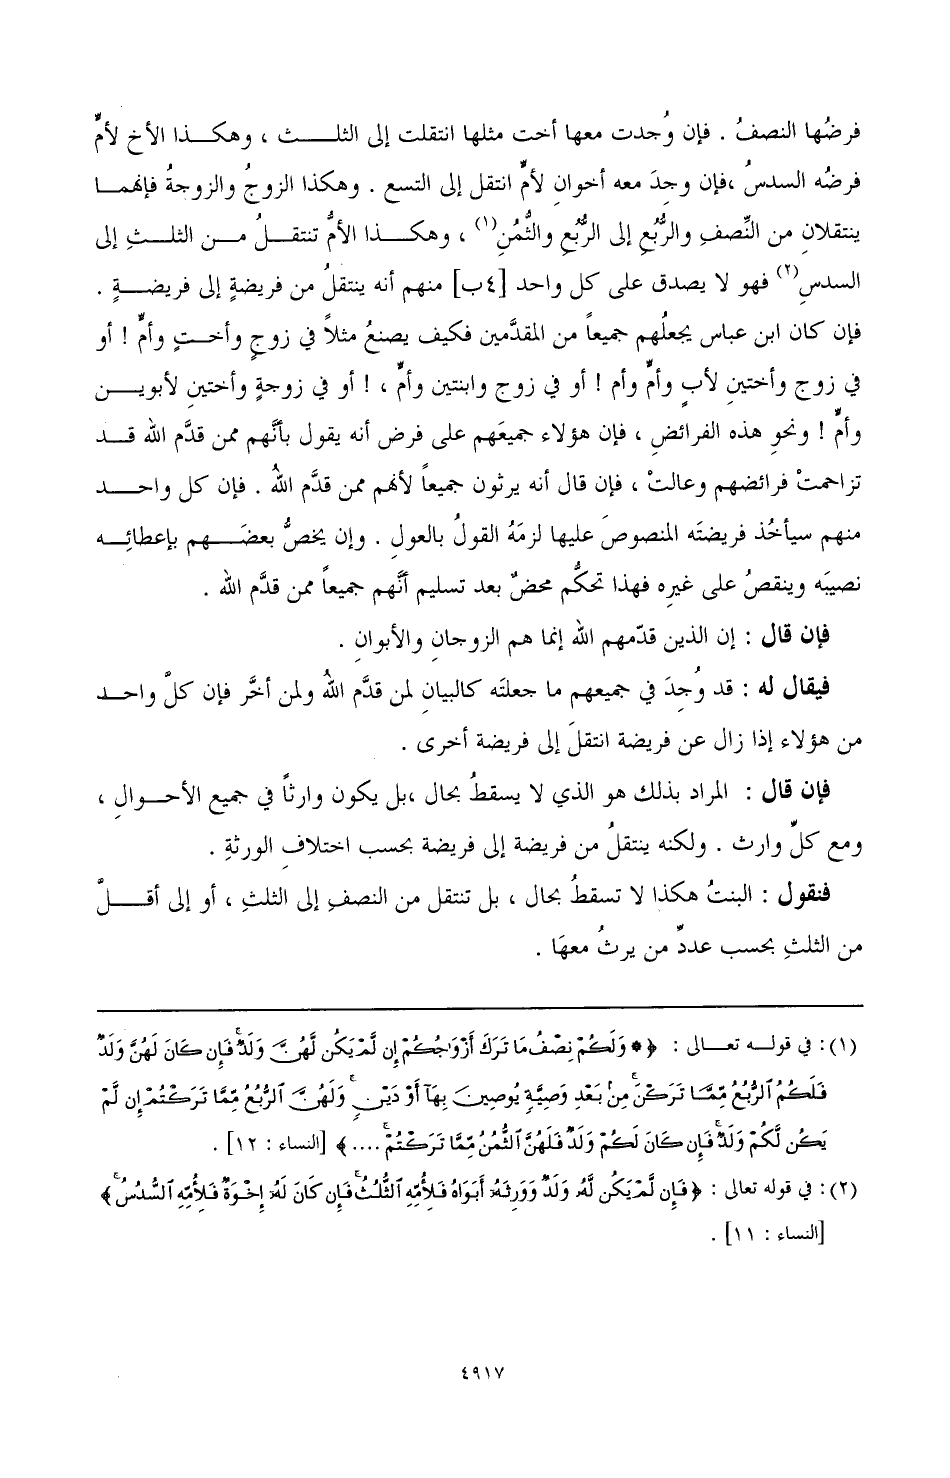 فرضُها النصفُ . فإن وُجدت معها أخت مثلها انتقلت إلى الثلـــث ، وهكـــذا الأخ لأمٍّ
فرضُه السدسُ ،فإن وجدَ معه أخوانِ لأمٍّ انتقل إلى التسع . وهكذا الزوجُ والزوجةُ فإنهمـا
ينتقلان من النِّصفِ والرُّبُعِ إلى الرُّبُعِ والثُّمُنِ(١) ، وهكـــذا الأمُّ تنتقـــلُ مـــن الثلـــثِ إلى
السدسِ(٢) فهو لا يصدق على كل واحد [٤ب] منهم أنه ينتقلُ من فريضةٍ إلى فريضـــةٍ .
فإن كان ابن عباس يجعلُهم جميعاً من المقدَّمين فكيف يصنعُ مثلاً في زوجٍ وأخـتٍ وأمٍّ ! أو
في زوج وأختينِ لأبٍ وأمٍّ وأم ! أو في زوج وابنتين وأمٍّ ، ! أو في زوجةٍ وأختينِ لأبويـــن
وأمٍّ ! ونحوِ هذه الفرائضِ ، فإن هؤلاء جميعَهم على فرض أنه يقول بأنَّهم ممن قدَّم الله قـــد
تزاحمتْ فرائضهم وعالتْ ، فإن قال أنه يرثون جميعاً لأنهم ممن قدَّم اللهُ . فإن كل واحـــد
منهم سيأخُذ فريضتَه المنصوصَ عليها لزمَهُ القولُ بالعولِ . وإن يخصُّ بعضَـــهم بإعطائِـــه
نصيبَه وينقصُ على غيرِه فهذا تحكُّم محضٌ بعد تسليم أنَّهم جميعاً ممن قدَّم الله .
فإن قال : إن الذين قدّمهم الله إنما هم الزوجانِ والأبوانِ .
فيقال له : قد وُجِدَ في جميعهم ما جعلتَه كالبيانِ لمن قدَّم اللهُ ولمن أخَّر فإن كلَّ واحـــد
من هؤلاء إذا زال عن فريضة انتقلَ إلى فريضة أخرى .
فإن قال : المراد بذلك هو الذي لا يسقطُ بحال ،بل يكون وارثاً في جميع الأحـــوالِ ،
ومع كلِّ وارث . ولكنه ينتقلُ من فريضة إلى فريضة بحسب اختلافِ الورثةِ .
فنقول : البنتُ هكذا لا تسقطُ بحال ، بل تنتقل من النصفِ إلى الثلثِ ، أو إلى أقـــلَّ
من الثلثِ بحسب عددِّ من يرثُ معهَا .
(١): في قولـــه تعـــالى : ﴿ * وَلَكُمْ نِصْفُ مَا تَرَكَ أَزْوَٰجُكُمْ إِن لَّمْ يَكُن لَّهُنَّ وَلَدٌ ۚ فَإِن كَانَ لَهُنَّ وَلَدٌ
فَلَكُمُ ٱلرُّبُعُ مِمَّا تَرَكْنَ ۚ مِنۢ بَعْدِ وَصِيَّةٍ يُوصِينَ بِهَآ أَوْ دَيْنٍ ۚ وَلَهُنَّ ٱلرُّبُعُ مِمَّا تَرَكْتُمْ إِن لَّمْ
يَكُن لَّكُمْ وَلَدٌ ۚ فَإِن كَانَ لَكُمْ وَلَدٌ فَلَهُنَّ ٱلثُّمُنُ مِمَّا تَرَكْتُم ۚ .... ﴾ [النساء : ١٢] .
(٢): في قوله تعالى : ﴿ فَإِن لَّمْ يَكُن لَّهُۥ وَلَدٌ وَوَرِثَهُۥٓ أَبَوَاهُ فَلِأُمِّهِ ٱلثُّلُثُ ۚ فَإِن كَانَ لَهُۥٓ إِخْوَةٌ فَلِأُمِّهِ ٱلسُّدُسُ ۚ ﴾
[النساء : ١١] .
٤٩١٧